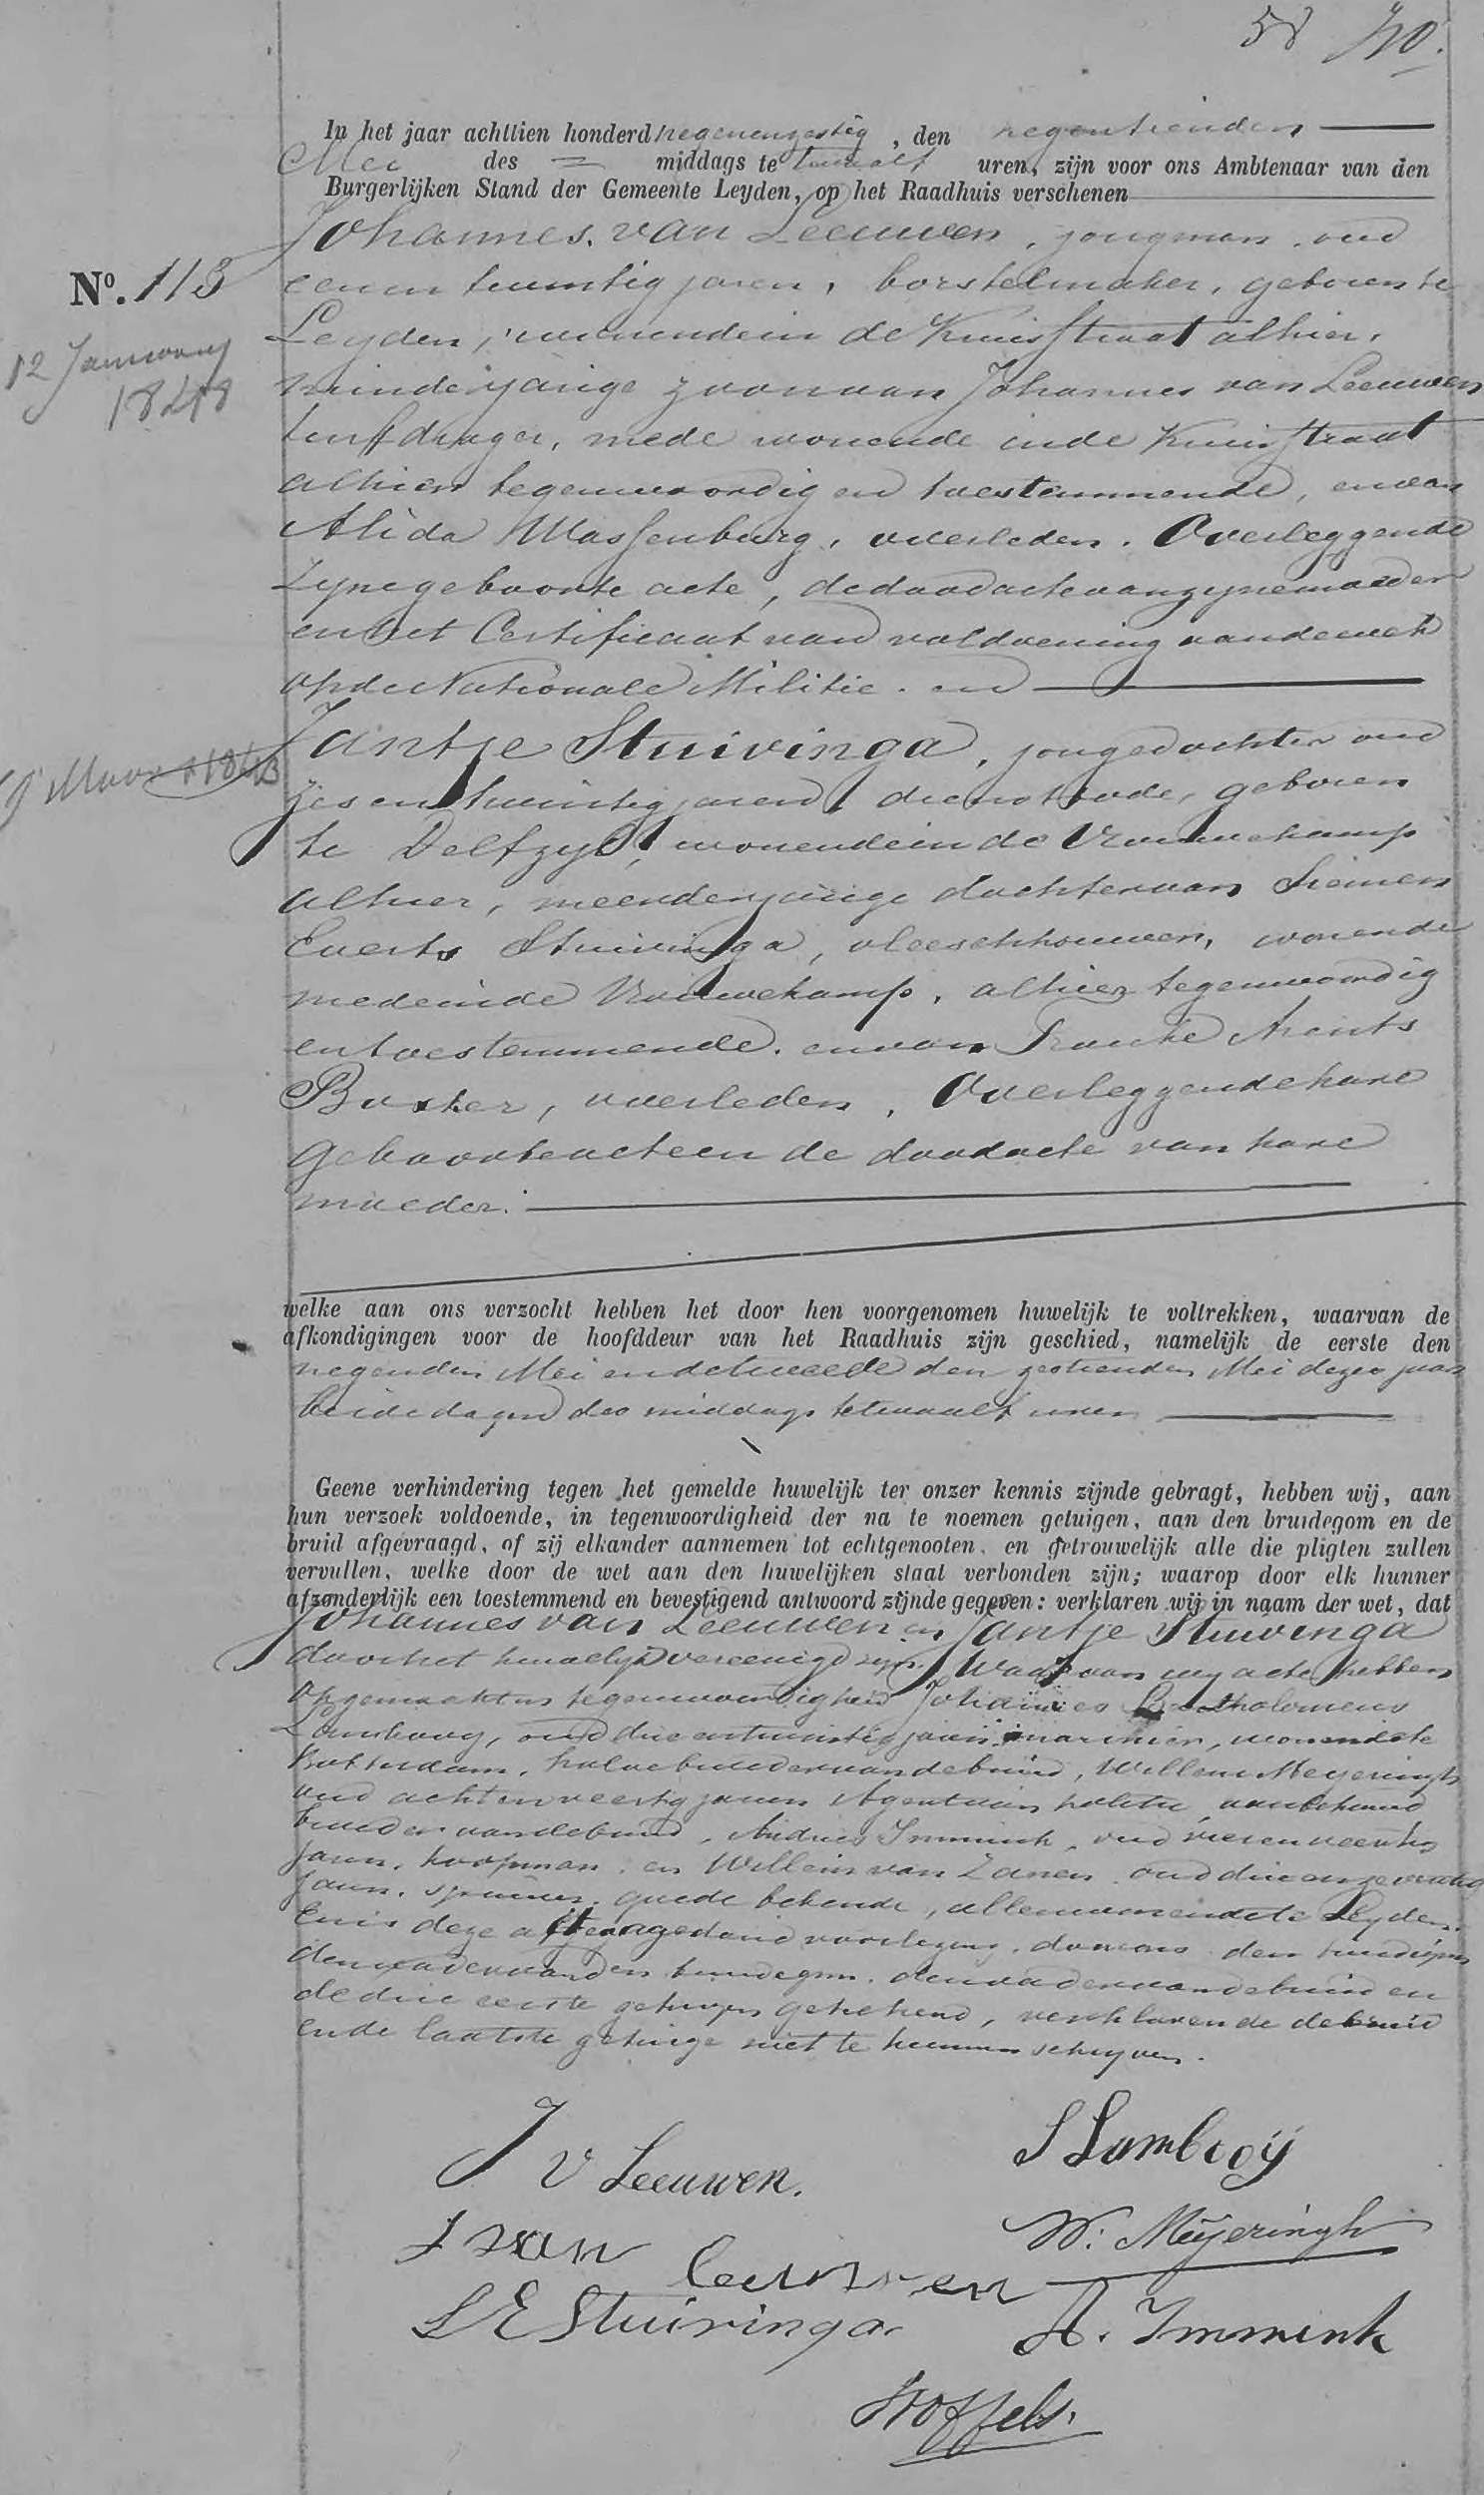 58 40.
In het jaar achttien honderd negenenzestig, den negentienden
Mei des = middags te twaalf uren, zijn voor ons Ambtenaar van den
Burgerlijken Stand der Gemeente Leyden, op het Raadhuis verschenen
Johannes van Leeuwen, jongman, oud
No. 113
eenen twintig jaren, borstelmaker, geboren te
Leyden, wonende in de Kruisstraat alhier,
12 January
1848
minderjarige zoon van Johannes van Leeuwen
turfdrager, mede wonende in de Kruisstraat
alhier tegenwoordig en toestemmende, en van
Alida Wassenburg, overleden. Overleggende
zyne geboorte acte, de doodacte van zyne moeder
en het Certificaat van voldoening aan de wet
op de Nationale Militie. en
Jantje Stuivinga, jongedochter oud
19 Maart 1843
zes en twintig jaren, dienstbode, geboren
te Delfzyl, wonende in de Vrouwekamp
alhier, meerderjarige dochter van Siemen
Everts Stuivinga, vleeschhouwer, wonende
mede in de Vrouwekamp, alhier tegenwoordig
en toestemmende. en van Trouke Arents
Boxker, overleden, Overleggende hare
geboorteacte en de doodacte van hare
moeder.
welke aan ons verzocht hebben het door hen voorgenomen huwelijk te voltrekken, waarvan de
afkondigingen voor de hoofddeur van het Raadhuis zijn geschied, namelijk de eerste den
negenden Mei en de tweede den zestienden Mei dezes jaars
beide dagen des middags te twaalf uren
Geene verhindering tegen het gemelde huwelijk ter onzer kennis zijnde gebragt, hebben wij, aan
hun verzoek voldoende, in tegenwoordigheid der na te noemen getuigen, aan den bruidegom en de
bruid afgevraagd, of zij elkander aannemen tot echtgenooten, en getrouwelijk alle die pligten zullen
vervullen, welke door de wet aan den huwelijken staat verbonden zijn; waarop door elk hunner
afzonderlijk een toestemmend en bevestigend antwoord zijnde gegeven: verklaren wij in naam der wet, dat
Johannes van Leeuwen en Jantje Stuivinga
door het huwelyk vereenigd zyn. Waarvan wy acte hebben
opgemaakt in tegenwoordigheid Johannes Bartholomeus
Lambooy, oud drie en twintig jaren, marinier, wonende te
Rotterdam, halve broeder van de bruid, Willem Meyeringh
oud acht en veertig jaren Agent van politie, aanbehuwd
broeder van de bruid, Andries Immink, oud vier en veertig
jaren, koopman, en Willem van Zanen oud drie en zeventig
jaren, spinner, goede bekende, allen wonende te Leyden.
En is deze acte na gedane voorlezing, door ons den bruidegom
den vader van den bruidegom, den vader van de bruid en
de drie eerste getuigen getekend, verklarende de bruid
en de laatste getuige niet te kunnen schryven.
J v Leeuwen.
S Lambooÿ
J van leeuwen
W. Meÿeringh
S E Stuivinga
A. Immink
Stoffels.